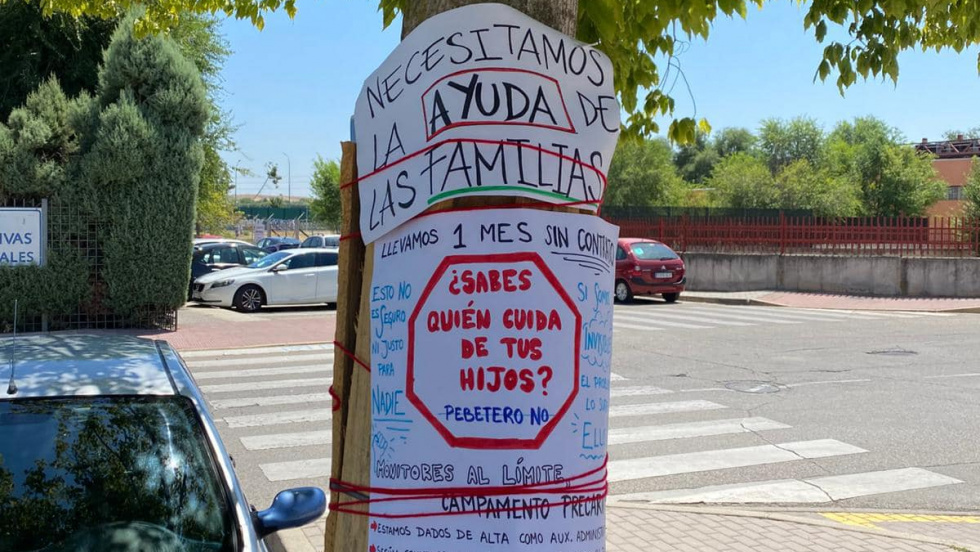 NECESITAMOS
AYUDA DE
LA
LAS FAMILIAS
LLEVAMOS 1 MES SIN CONTRATO
ESTO NO
ES SEGURO
NI JUSTO
PARA
NADIE
¿SABES
QUIÉN CUIDA
DE TUS
HIJOS?
PEBETERO NO
SI SOMOS
EL
LO
MONITORES AL LÍMITE,
CAMPAMENTO
ESTAMOS DADOS DE ALTA COMO AUX.
IVAS
ALES